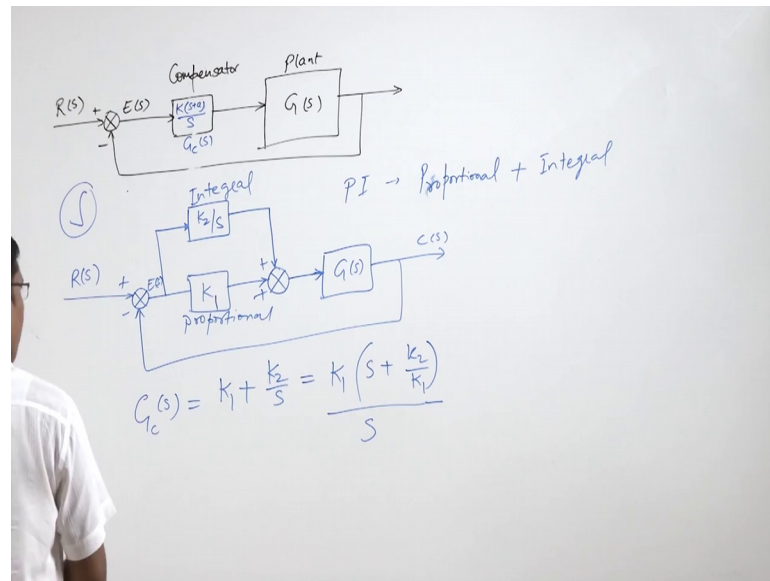 Compensator Plant
R(s) + E(s) K(s+a)/s G(s)
−
Gc(s)
Integral
PI → Proportional + Integral
∫
K2/s
C(s)
R(s) + E(s) K1 + + G(s)
−
proportional
Gc(s) = K1 + K2/s = K1(s + K2/K1)/s